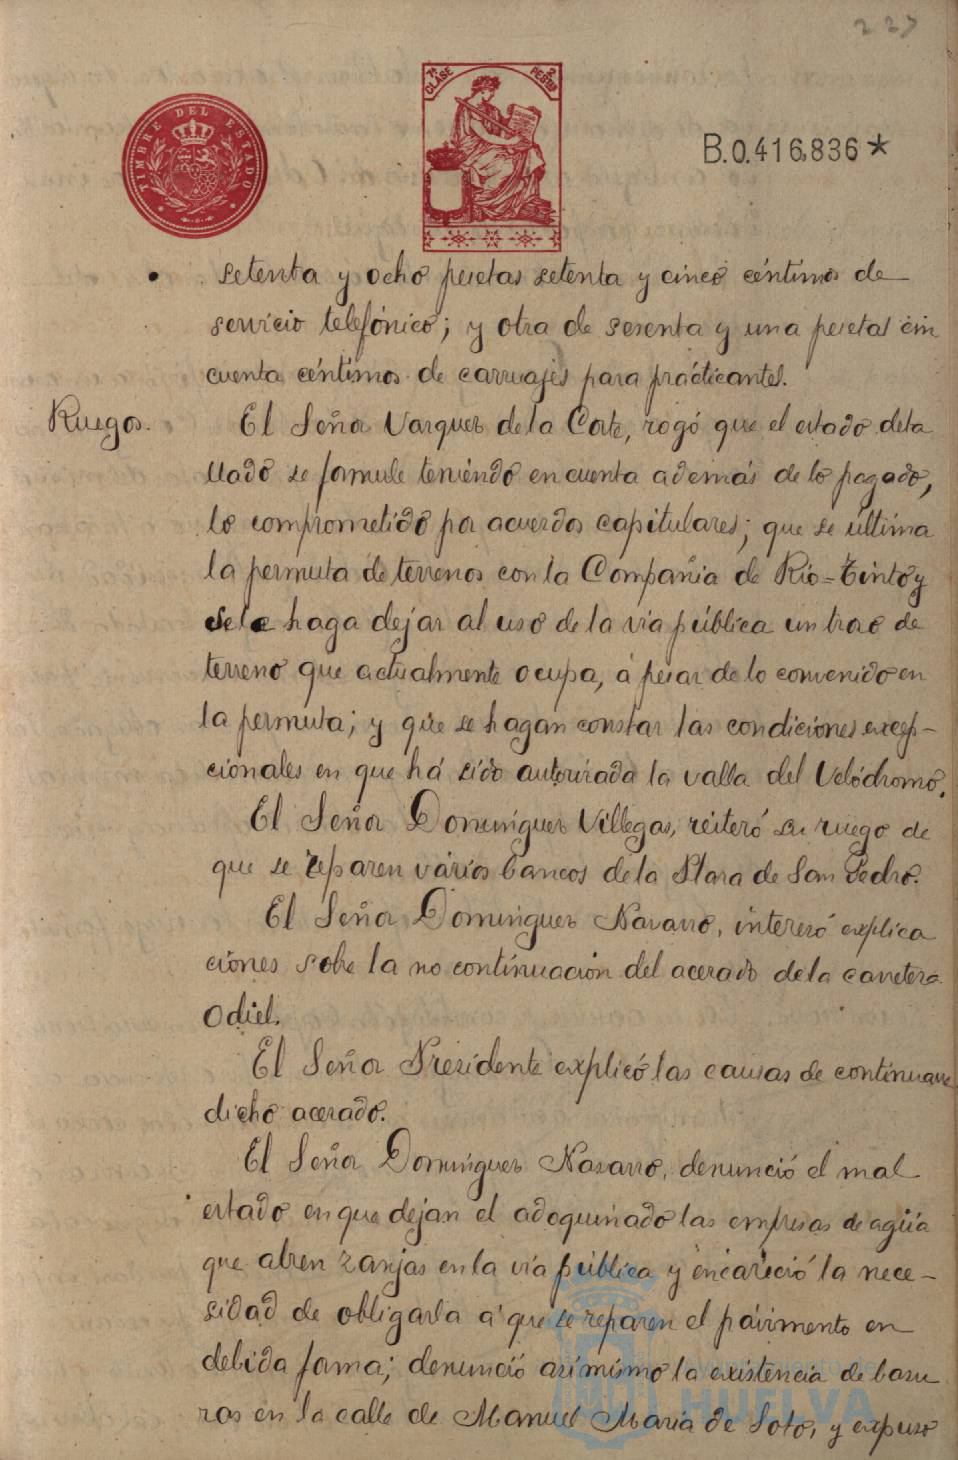 227
TIMBRE DEL ESTADO
7ª CLASE
2 PESETAS
B.0.416.836*
setenta y ocho pesetas setenta y cinco céntimos de
servicio telefónico; y otra de sesenta y una pesetas cin
cuenta céntimos de carruajes para practicantes.
Ruegos.
El Señor Vazquez de la Corte, rogó que el estado deta
llado se formule teniendo en cuenta además de lo pagado,
lo comprometido por acuerdos capitulares; que se última
la permuta de terrenos con la Compañia de Rio=Tinto y
se le haga dejar al uso de la vía pública un trao de
terreno que actualmente ocupa, á pesar de lo convenido en
la permuta; y que se hagan constar las condiciones excep-
cionales en que há sido autorizada la valla del Velódromo.
El Señor Dominguez Villegas, reiteró su ruego de
que se reparen varios bancos de la Plaza de San Pedro.
El Señor Dominguez Navarro, interesó explica
ciones sobre la no continuación del acerado de la carretera
Odiel.
El Señor Presidente explicó las causas de continuarse
dicho acerado.
El Señor Dominguez Navarro, denunció el mal
estado en que dejan el adoquinado las empresas de agua
que abren zanjas en la vía pública y encareció la nece-
sidad de obligarla á que se reparen el pavimento en
debida forma; denunció asimismo la existencia de basu
ras en la calle de Manuel Maria de Soto, y expuso
Ayuntamiento de
HUELVA